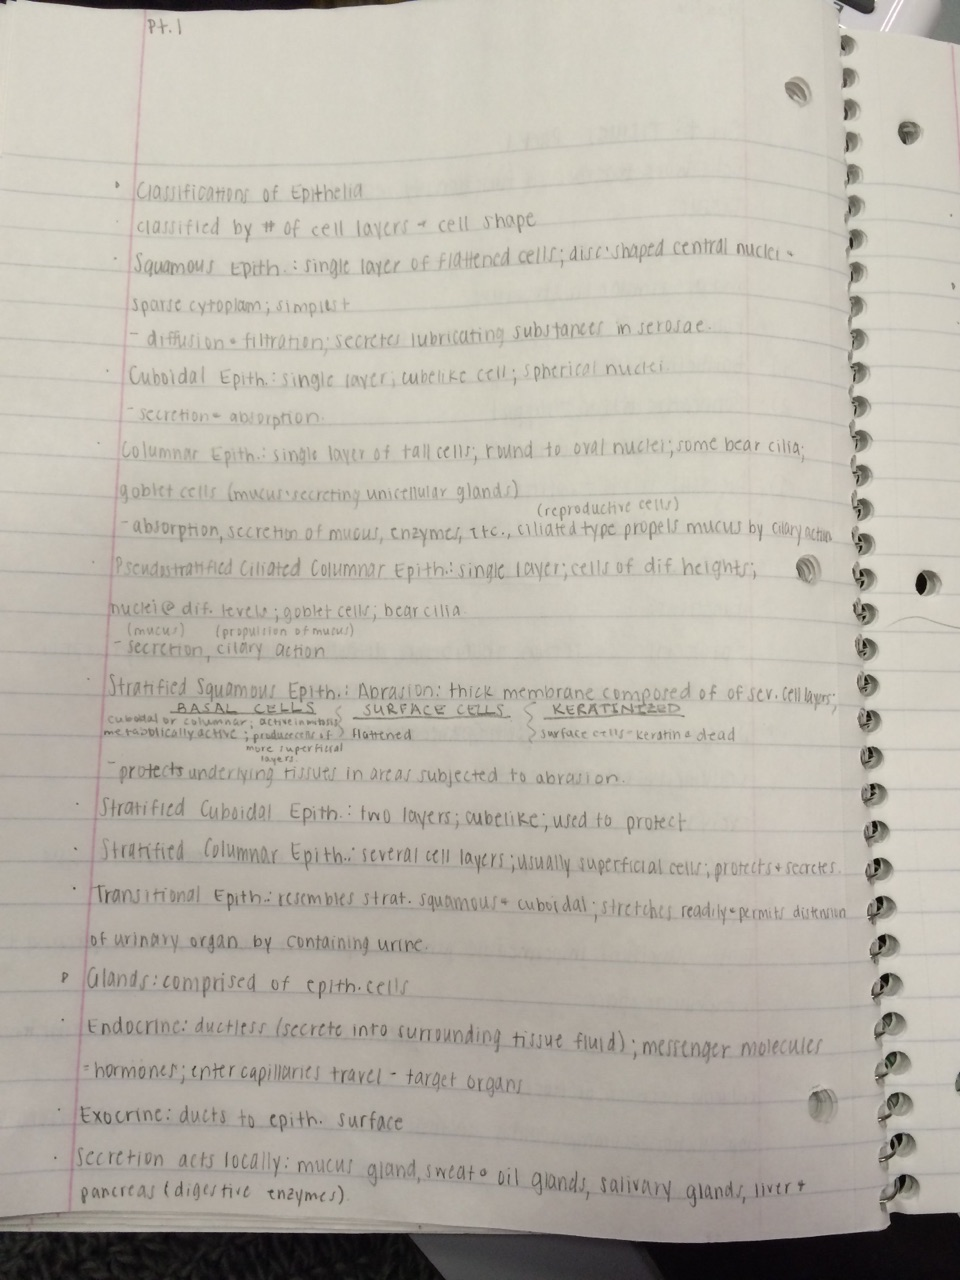 Pt.1
Classifications of Epithelia
classified by # of cell layers + cell shape
Squamous Epith.: single layer of flattened cells; disc-shaped central nuclei +
sparse cytoplam; simplest
- diffusion + filtration; secretes lubricating substances in serosae.
Cuboidal Epith.: single layer; cubelike cell; spherical nuclei.
- secretion + absorption.
Columnar Epith.: single layer of tall cells; round to oval nuclei; some bear cilia;
goblet cells (mucus-secreting unicellular glands)
(reproductive cells)
- absorption, secretion of mucus, enzymes, etc., ciliated type propels mucus by cilary action
Pseudostratified Ciliated Columnar Epith.: single layer; cells of dif. heights;
nuclei @ dif. levels; goblet cells; bear cilia
(mucus) (propulsion of mucus)
- secretion, cilary action
Stratified Squamous Epith.: Abrasion: thick membrane composed of of sev. cell layers;
BASAL CELLS { SURFACE CELLS { KERATINIZED
cuboidal or columnar; active in mitosis flattened surface cells - keratin & dead
metabolically active; produce cells of
more superficial
layers.
- protects underlying tissues in areas subjected to abrasion.
Stratified Cuboidal Epith.: two layers; cubelike; used to protect
Stratified Columnar Epith.: several cell layers; usually superficial cells; protects + secretes.
Transitional Epith.: resembles strat. squamous + cuboidal; stretches readily + permits distension
of urinary organ by containing urine.
Glands: comprised of epith. cells
Endocrine: ductless (secrete into surrounding tissue fluid); messenger molecules
= hormones; enter capillaries travel - target organs
Exocrine: ducts to epith. surface
Secretion acts locally: mucus gland, sweat + oil glands, salivary glands, liver +
pancreas (digestive enzymes)